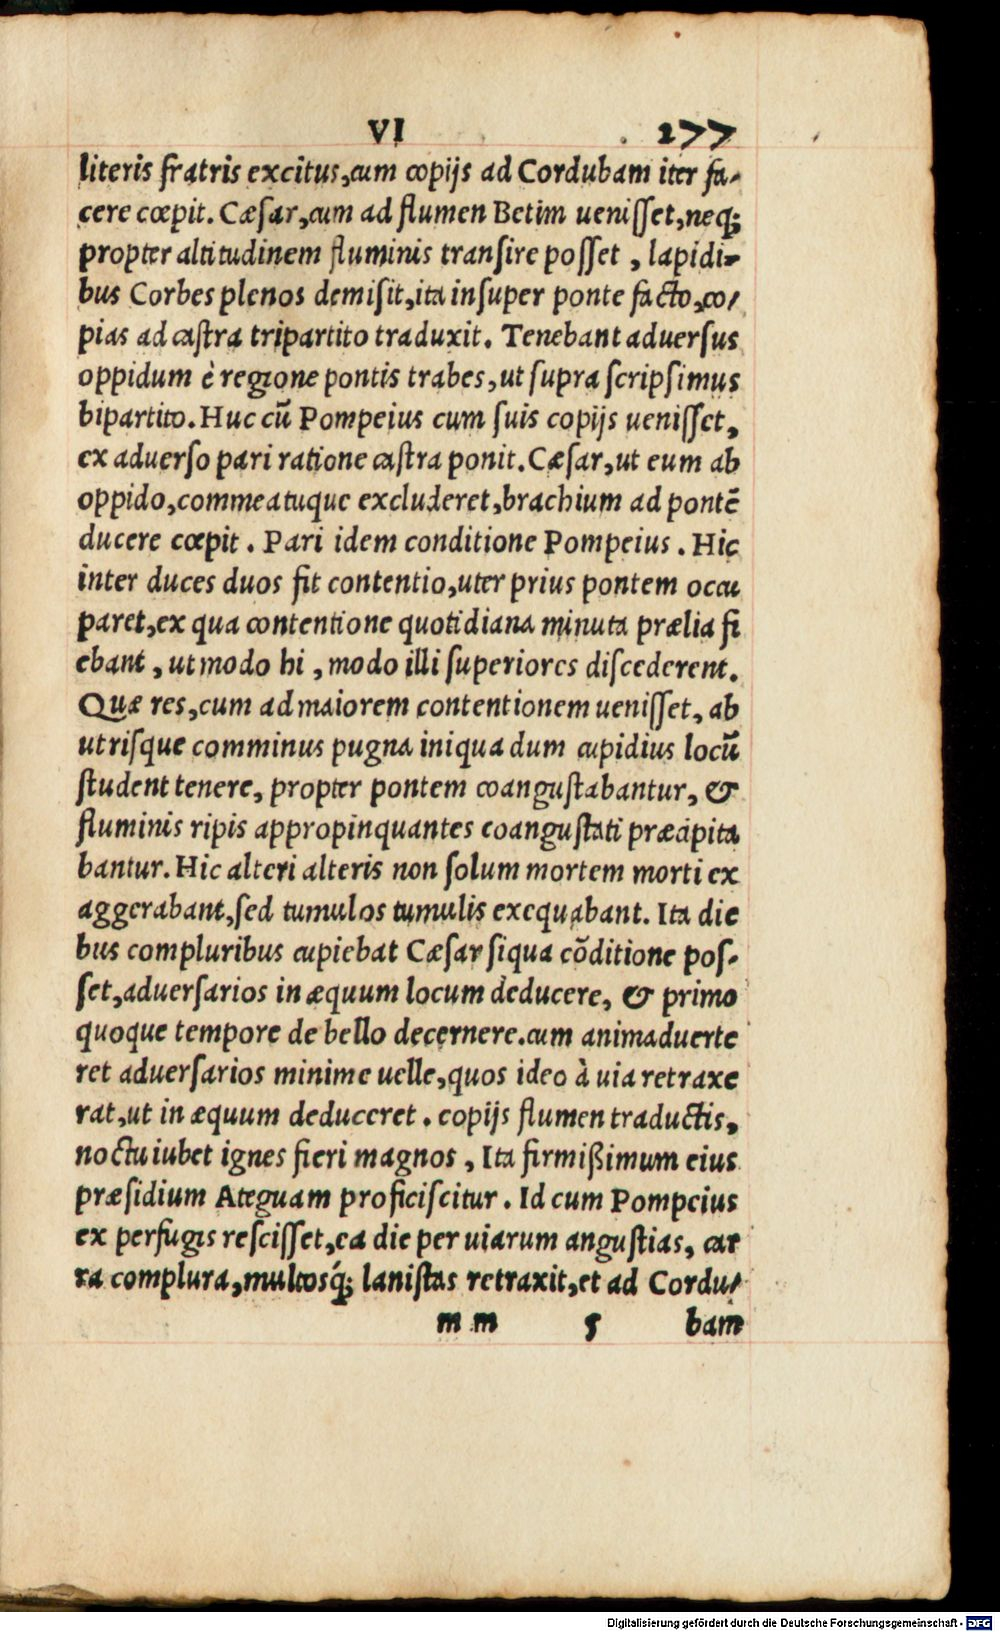 VI 277
literis fratris excitus,cum copijs ad Cordubam iter fa-
cere cœpit. Cæsar,cum ad flumen Betim uenisset,neq;
propter altitudinem fluminis transire posset , lapidi-
bus Corbes plenos demisit,ita insuper ponte facto,co-
pias ad castra tripartito traduxit. Tenebant aduersus
oppidum è regione pontis trabes,ut supra scripsimus
bipartito.Huc cū Pompeius cum suis copijs uenisset,
ex aduerso pari ratione castra ponit.Cæsar,ut eum ab
oppido,commeatuque excluderet,brachium ad pontē
ducere cœpit . Pari idem conditione Pompeius . Hic
inter duces duos fit contentio,uter prius pontem occu
paret,ex qua contentione quotidiana minuta prælia fi
ebant , ut modo hi , modo illi superiores discederent.
Quæ res,cum ad maiorem contentionem uenisset, ab
utrisque comminus pugna iniqua dum cupidius locū
student tenere, propter pontem coangustabantur, &
fluminis ripis appropinquantes coangustati præcipita
bantur. Hic alteri alteris non solum mortem morti ex
aggerabant,sed tumulos tumulis exequabant. Ita die
bus compluribus cupiebat Cæsar siqua cōditione pos-
set,aduersarios in æquum locum deducere, & primo
quoque tempore de bello decernere.cum animaduerte
ret aduersarios minime uelle,quos ideo à uia retraxe
rat,ut in æquum deduceret . copijs flumen traductis,
noctu iubet ignes fieri magnos , Ita firmißimum eius
præsidium Ateguam proficiscitur . Id cum Pompeius
ex perfugis rescisset,ea die per uiarum angustias, car
ra complura,multosq́; lanistas retraxit,et ad Cordu-
mm 5 bam
Digitalisierung gefördert durch die Deutsche Forschungsgemeinschaft - DFG